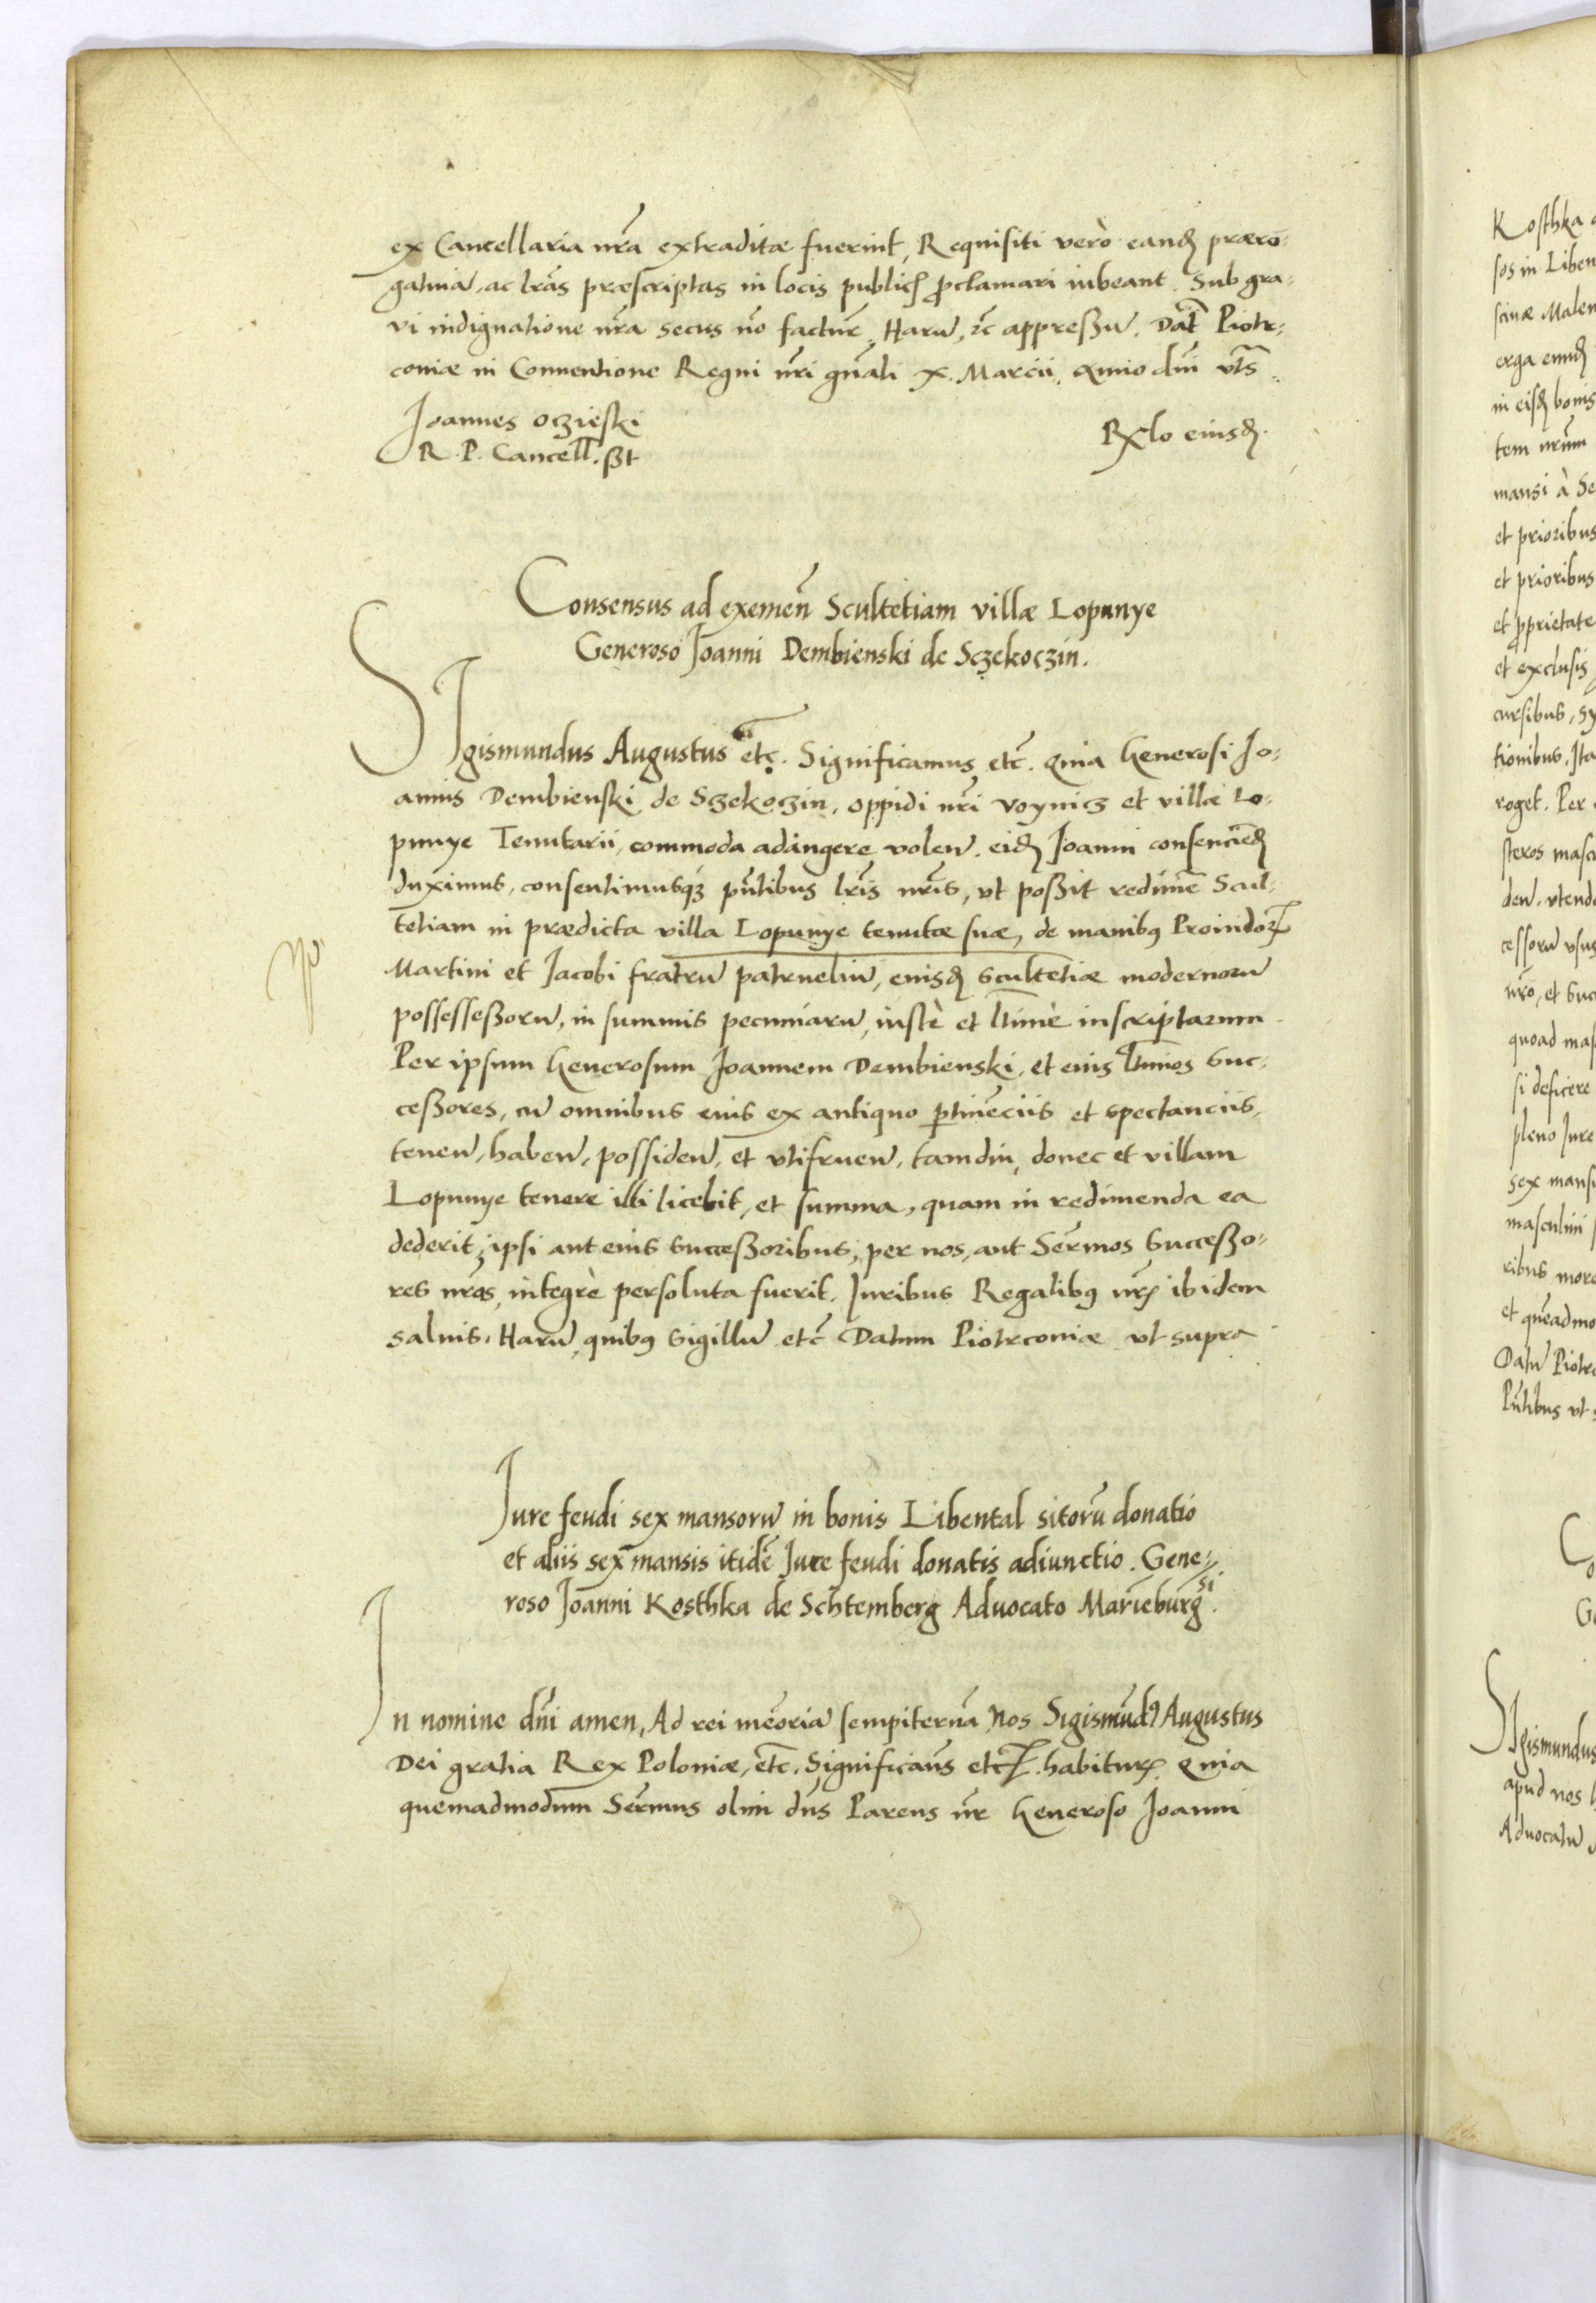 ex Cancellaria nr̃a extraditæ fuerint, Requisiti verò eandẽ præro-
gatiuã, ac lrãs præscriptas in locis publicꝭ ꝓclamari iubeant. Sub gra-
vi indignatione nr̃a secus nõ factur̃. Harũ, ꝛc̃ appressũ. Dat̃ Piotr-
coniæ in Conuentione Regni nr̃i gñali X. Marcii, Anno dñi vts̃.
Joannes Oczieski
R. P. Cancell. sst
Rxlo eiusdẽ.
Consensus ad exemeñ Scultetiam villæ Lopunye
Generoso Joanni Dembienski de Sczekoczin.
SIgismundus Augustus etc̃. Significamus etc̃. Quia Generosi Jo-
annis Dembienski de Sczekoczin, oppidi nr̃i Voynicz et villæ Lo-
punye Tenutarii, commoda adaugere volen̄. eidẽ Joanni consenciẽdẽ
duximus, consentimusqꝫ pñtibus lrĩs nrĩs, vt possit redimer̃ Scul-
tetiam in prædicta villa Lopunye tenutæ suæ, de manibꝰ Prouidoꝝ
Martini et Jacobi fratrũ patrueliũ, eiusdẽ scultetiæ modernorũ
possessessorũ, in summis pecuniarũ, iustè et ltimè inscriptarum.
Per ipsum Generosum Joannem Dembienski, et eius ltimos Suc-
cessores, cũ omnibus eius ex antiquo ꝑtinẽciis et spectanciis,
tenen̄, haben̄, possiden̄, et vtifruen̄, tamdiu, donec et villam
Lopunye tenere illi licebit, et summa, quam in redimenda ea
dederit, ipsi aut eius successoribus, per nos, aut Sermõs Successo-
res nr̃os, integrè persoluta fuerit. Juribus Regalibꝰ nr̃ꝭ ibidem
saluis. Harũ, quibꝰ sigillũ etc̃ Datum Piotrconiæ vt supra
Jure feudi sex mansorũ in bonis Libental sitorũ donatio
et aliis sex mansis itidẽ Jure feudi donatis adiunctio. Gene-
roso Joanni Kosthka de Schtemberg Aduocato Marieburgsi.
In nomine dñi amen, Ad rei mẽoriã sempiternã Nos Sigismũdꝰ Augustus
Dei gratia Rex Poloniæ, etc̃. Significam̃s etc̃. habiturꝭ. Quia
quemadmodum Sermũs olim dñs Parens nr̃ Generoso Joanni
Kosthka
sos in Liben
scinæ Malen
erga eundẽ
in eisdẽ bonis
tem nrũm
mansi à Se
et prioribus
et prioribus
et ꝓprietate
et exclusis
cursibus, sy
tionibus, Ita
roget. Per
steros mascu
den̄. vtend
cessorũ vsus
nr̃o, et Suc
quoad mas
si deficere
pleno Jure
sex mans
masculini
ribus more
et quẽadmo
Datũ Piotr
Pñtibus vt s
Co
Ge
SIgismundus
apud nos
Aduocatũ